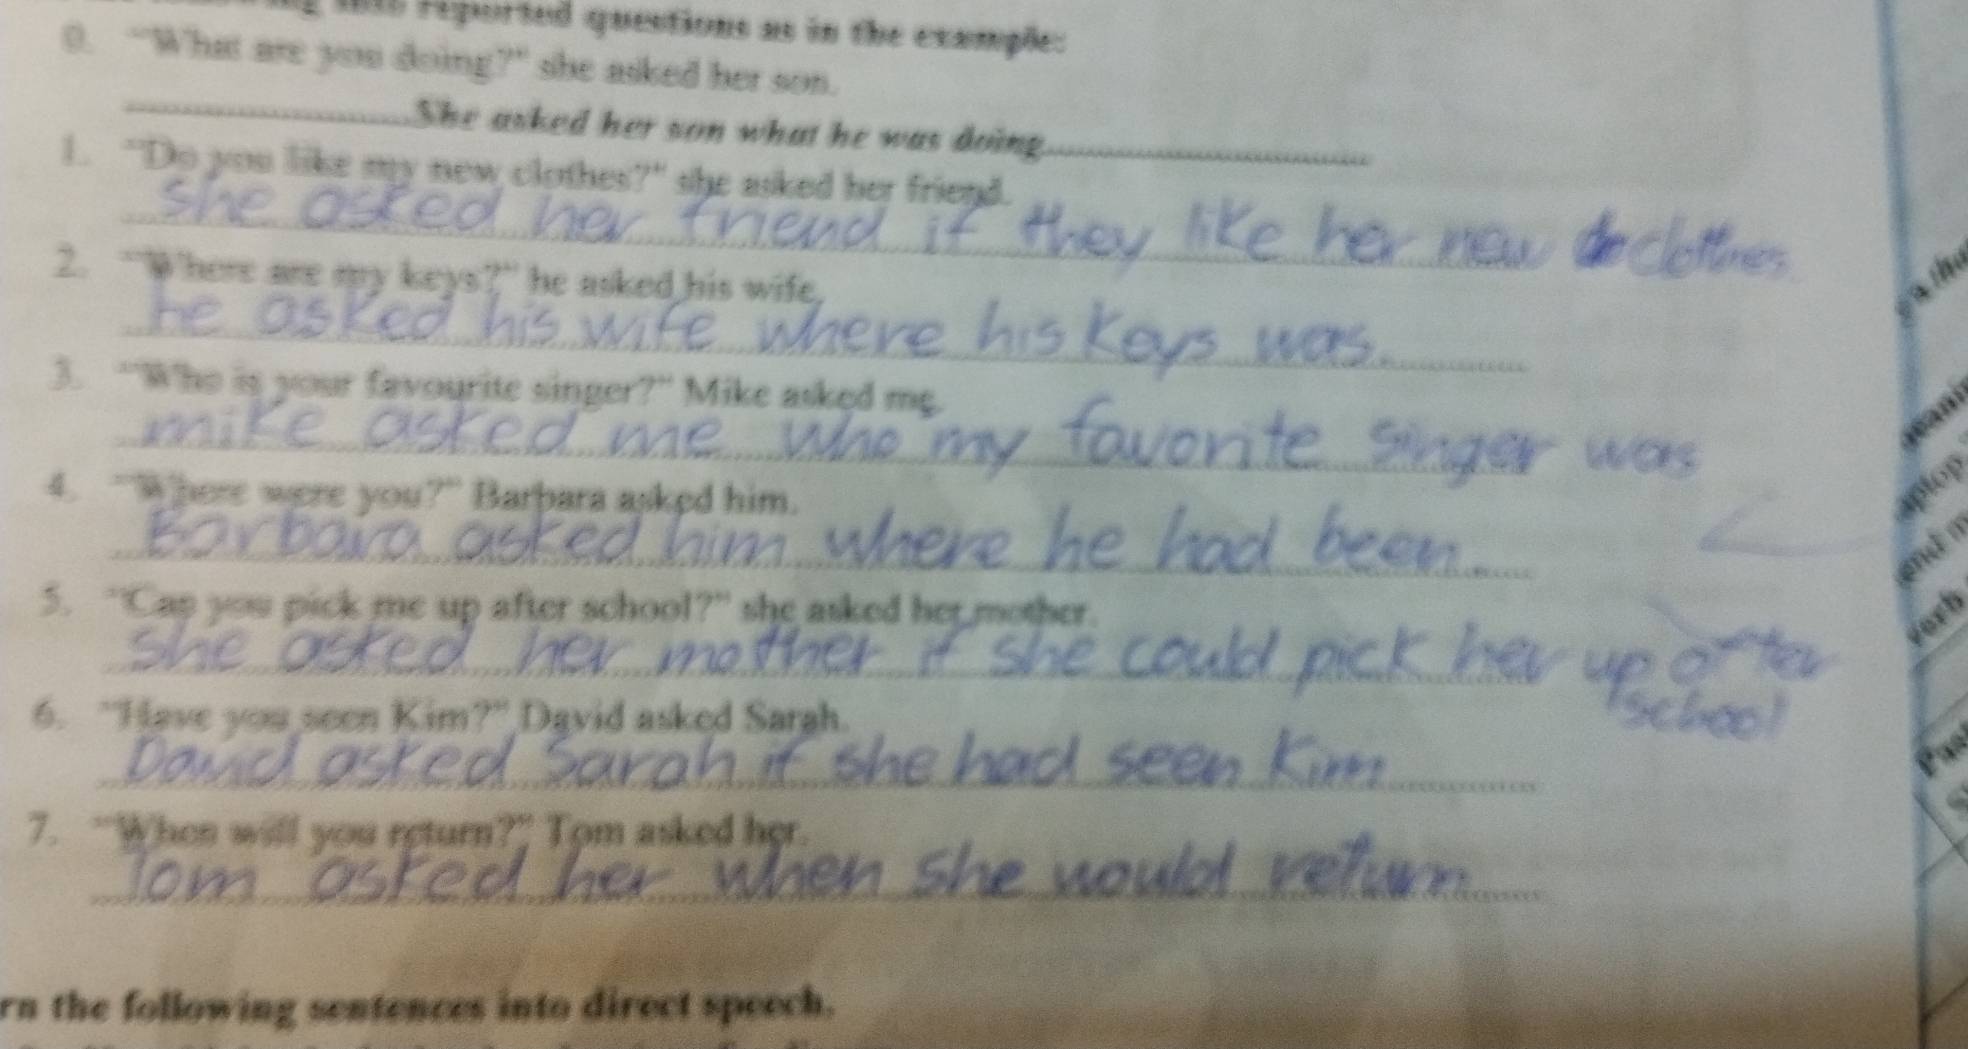 reported questions as in the example:
0. "What are you doing?" she asked her son.
She asked her son what he was doing
1. "Do you like my new clothes?" she asked her friend.
She asked her friend if they like her new clothes
2. "Where are my keys?" he asked his wife.
he asked his wife where his keys was.
3. "Who is your favourite singer?" Mike asked me.
mike asked me who my favorite singer was
4. "Where were you?" Barbara asked him.
Barbara asked him where he had been.
5. "Can you pick me up after school?" she asked her mother.
She asked her mother if she could pick her up after
school
6. "Have you seen Kim?" David asked Sarah.
David asked Sarah if she had seen Kim
7. "When will you return?" Tom asked her.
Tom asked her when she would return
rn the following sentences into direct speech.